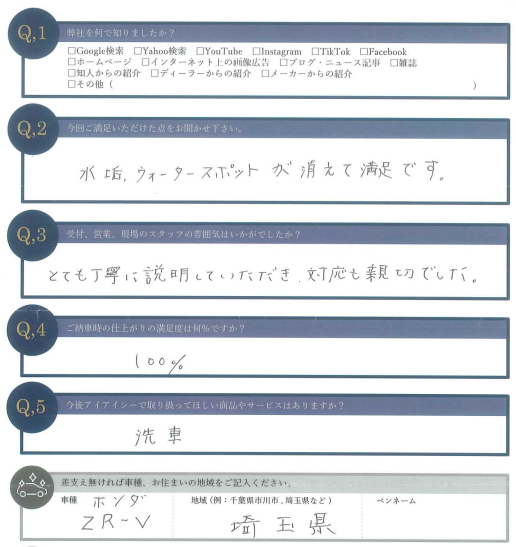 Q,1 弊社を何で知りましたか？
□Google検索 □Yahoo検索 □YouTube □Instagram □TikTok □Facebook
□ホームページ □インターネット上の画像広告 □ブログ・ニュース記事 □雑誌
□知人からの紹介 □ディーラーからの紹介 □メーカーからの紹介
□その他（ ）
Q,2 今回ご満足いただけた点をお聞かせ下さい。
水垢、ウォータースポットが消えて満足です。
Q,3 受付、営業、現場のスタッフの雰囲気はいかがでしたか？
とても丁寧に説明していただき、対応も親切でした。
Q,4 ご納車時の仕上がりの満足度は何％ですか？
100%
Q,5 今後アイアイシーで取り扱ってほしい商品やサービスはありますか？
洗車
差支え無ければ車種、お住まいの地域をご記入ください。
車種 ホンダ 地域（例：千葉県市川市、埼玉県など） ペンネーム
ZR-V 埼玉県